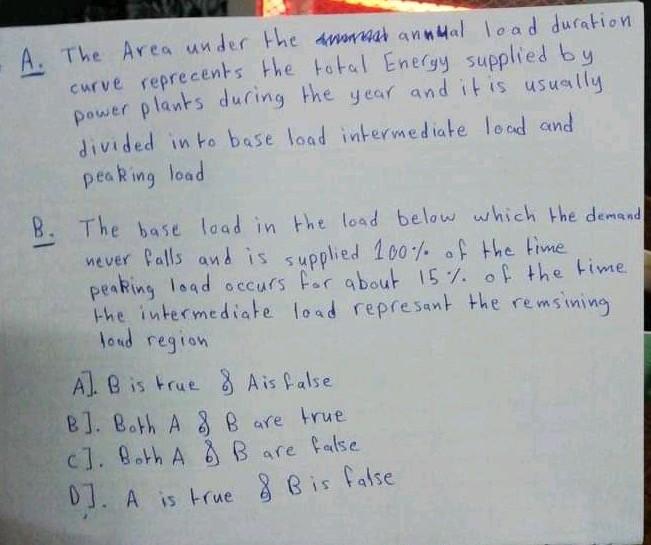 A. The Area under the annual load duration
curve reprecents the total Energy supplied by
power plants during the year and it is usually
divided into base load intermediate load and
peaking load
B. The base load in the load below which the demand
never falls and is supplied 100% of the time
peaking load occurs for about 15% of the time
the intermediate load represant the remsining
load region
A]. B is true & A is false
B]. Both A & B are true
C]. Both A & B are false
D]. A is true & B is false